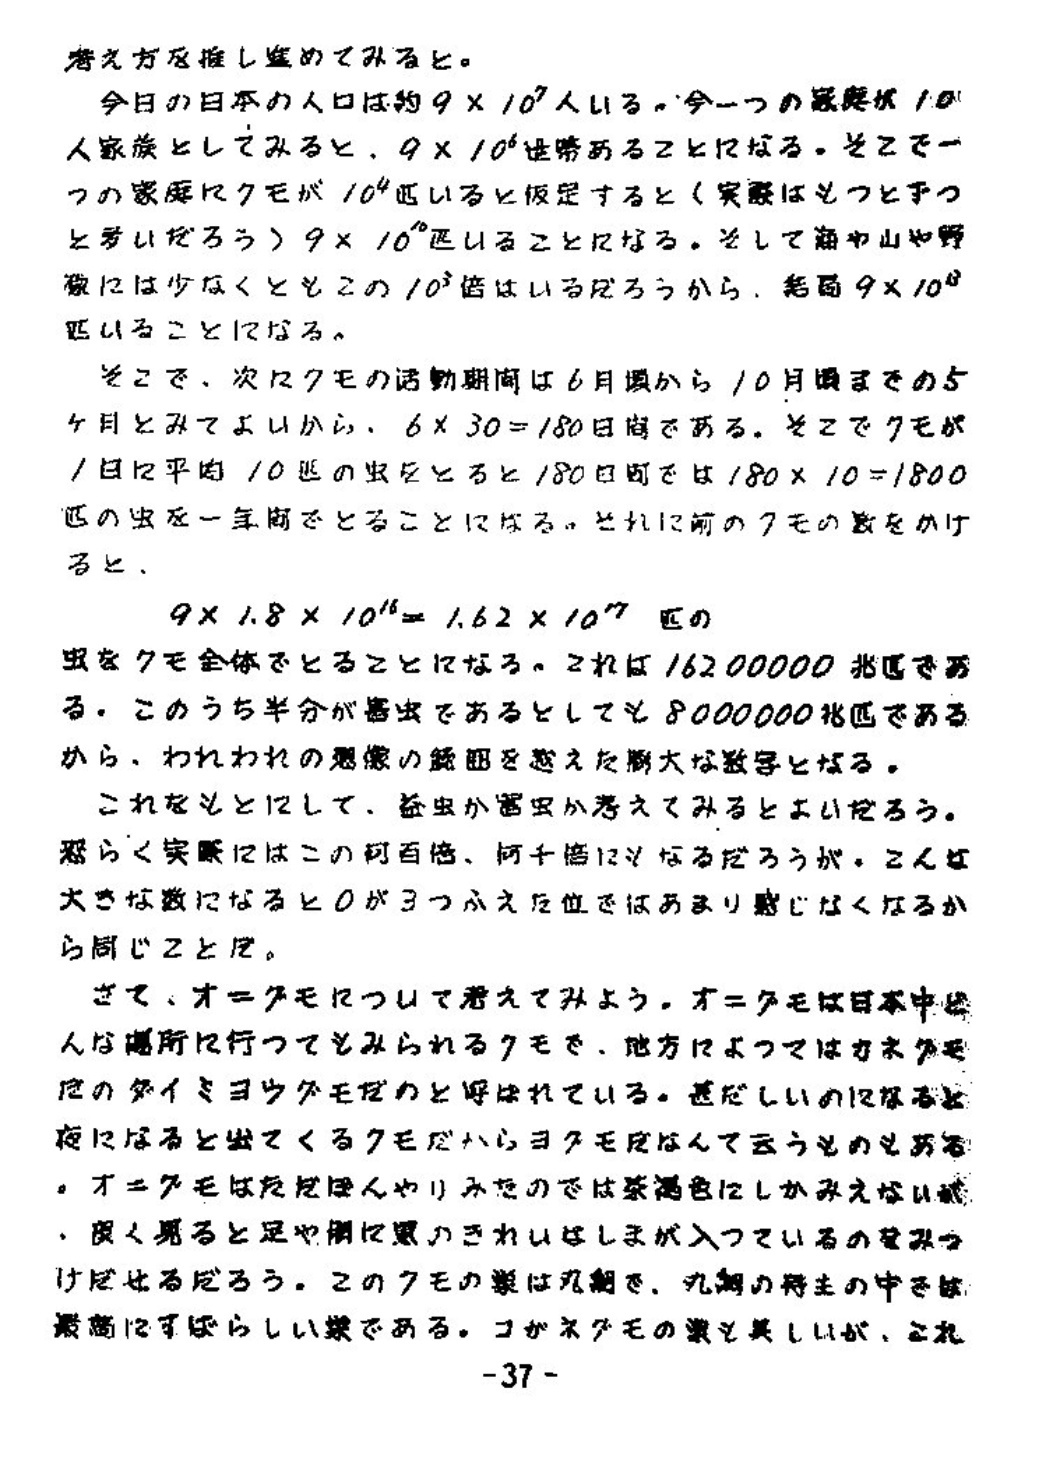 考え方を推し進めてみると。
今日の日本の人口は約9×10⁷人いる。今一つの家庭が10
人家族としてみると、9×10⁶世帯あることになる。そこで一
つの家庭にクモが10⁴匹いると仮定すると(実際はもつとずつ
と多いだろう)9×10¹⁰匹いることになる。そして海や山や野
原には少なくともこの10³倍はいるだろうから、結局9×10¹³
匹いることになる。
そこで、次にクモの活動期間は6月頃から10月頃までの5
ケ月とみてよいから、6×30=180日間である。そこでクモが
1日に平均10匹の虫をとると180日間では180×10=1800
匹の虫を一年間でとることになる。それに前のクモの数をかけ
ると、
9×1.8×10¹⁶=1.62×10¹⁷ 匹の
虫をクモ全体でとることになる。これは16200000兆匹であ
る。このうち半分が害虫であるとしても8000000兆匹である
から、われわれの想像の範囲を越えた膨大な数字となる。
これをもとにして、益虫か害虫か考えてみるとよいだろう。
恐らく実際にはこの何百倍、何千倍にもなるだろうが。こんな
大きな数になると0が3つふえた位ではあまり感じなくなるか
ら同じことだ。
さて、オニグモについて考えてみよう。オニグモは日本中ど
んな場所に行つてもみられるクモで、地方によつてはカネグモ
だのダイミヨウグモだのと呼ばれている。甚だしいのになると
夜になると出てくるクモだからヨグモだなんて云うものもある
。オニグモはただぼんやりみたのでは茶褐色にしかみえないが
、良く見ると足や側に黒のきれいなしまが入つているのをみつ
けだせるだろう。このクモの巣は丸網で、丸網の持主の中では
最高にすばらしい巣である。コガネグモの巣も美しいが、これ
-37-